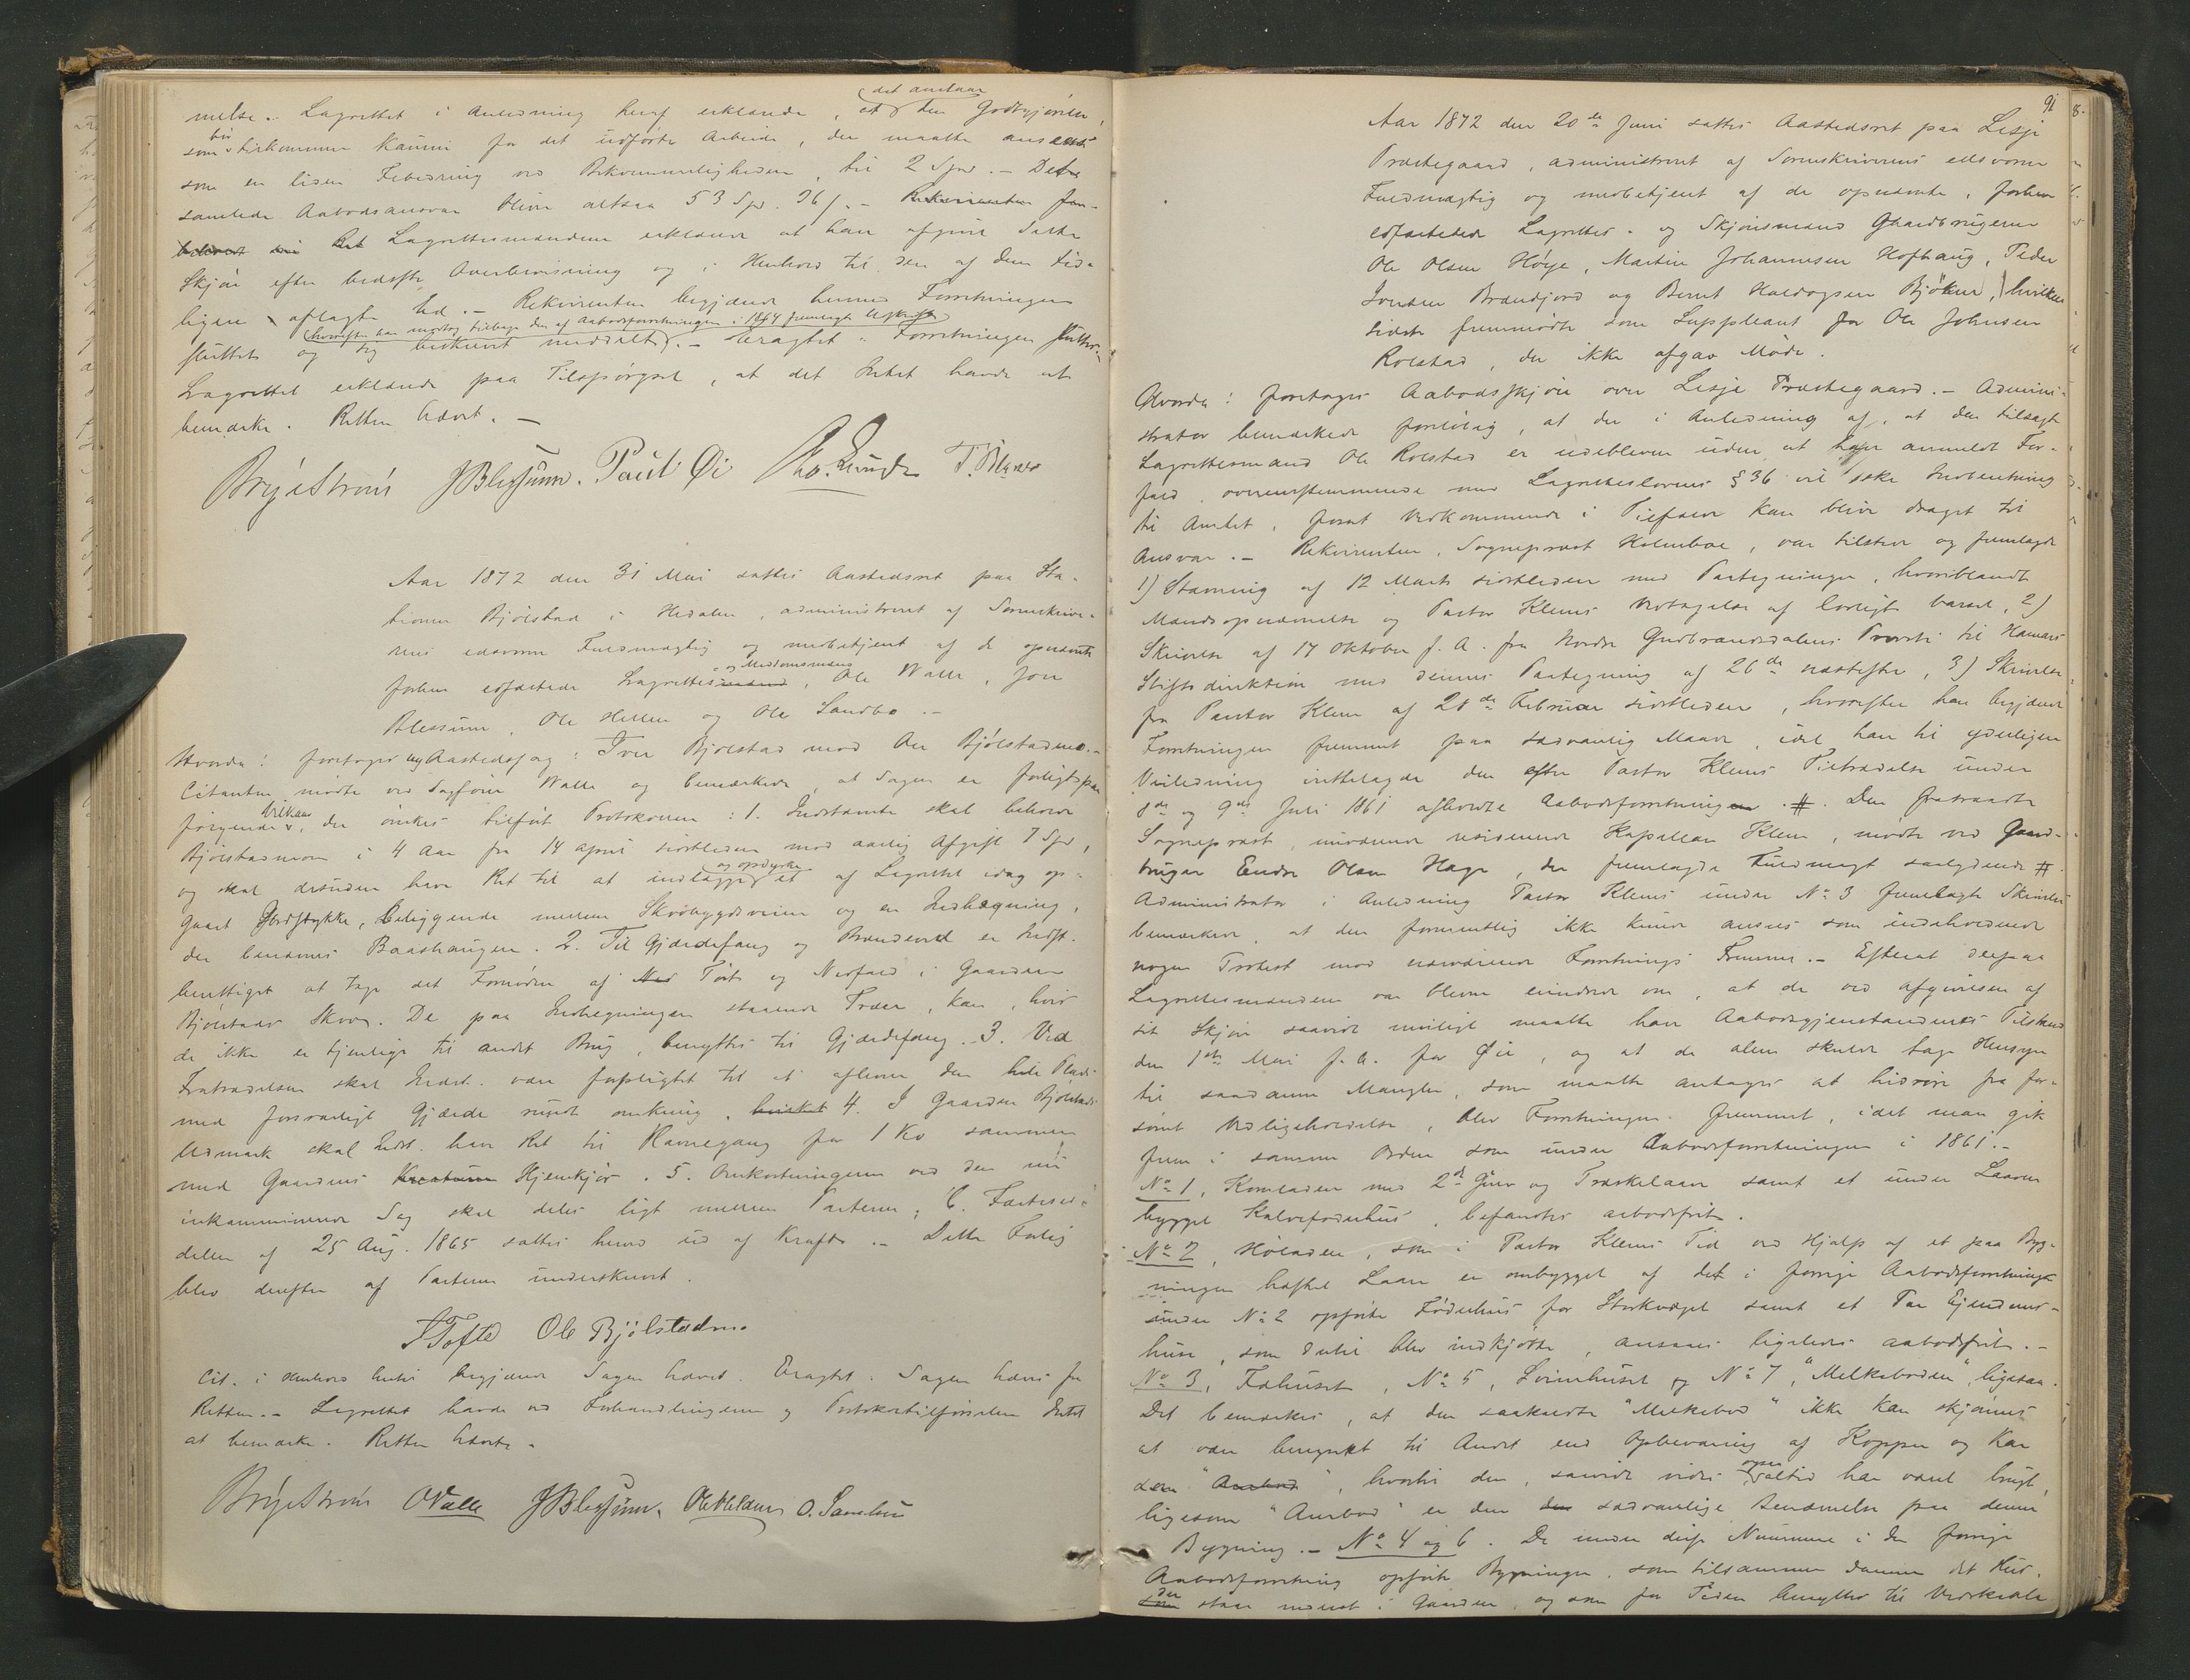 melse. Lagrettet i Anledning heraf erklærede, at det anslaar den Godtgjørelse,
som bør tilkomme Kaurin for det udførte Arbeide, der maatte ansees
som en liden Forbedring ved Bekvemmeligheden, til 2 Spd. – Det
samlede Aabodsansvar bliver altsaa 53 Spd. 96 s. – Rekvirenten
Ret Lagrettesmændene erklærede at have afgivet dette
Skjøn efter bedste Overbevisning og i Henhold til den af dem tid-
ligere aflagte Ed. – Rekvirenten begjærede hermed Forretningen
sluttet og sig beskrevet meddelt (hvorefter han modtog tilbage den af Aabodsforretningen i 1864 fremlagte Udskrift). – Eragtet: Forretningen sluttes.
Lagrettet erklærede paa Tilspørgsel, at det Intet havde at
bemærke. Retten hævet. –
Brystrøm JBlessum. Paul Øi Lunde T.
Aar 1872 den 31 Mai sattes Aastedsret paa Sta-
tionen Bjølstad i Hedalen, administreret af Sorenskrive-
rens edsvorne Fuldmægtig og medbetjent af de opnævnte
forhen edfæstede Lagrettes og Meddomsmænd, Ole Walle, Jon
Blessum, Ole Hellen og Ole Sandbo. –
Hvorda: foretages ny Aastedssag: Iver Bjølstad mod Ole Bjølstadmo. –
Citanten mødte ved Sagfører Walle og bemærkede, at Sagen er forligt paa
følgende Vilkaar, der ønskes tilført Protokollen: 1. Indstævnte skal beholde
Bjølstadmoen i 4 Aar fra 14 April sidstleden mod aarlig Afgift 7 Spd,
og skal desuden have Ret til at indlægge og opdyrke et af Lagrettet idag op-
gaaet Jordstykke, beliggende mellem Skovbygdsveien og en Indhegning,
der benævnes Baashaugen. 2. Til Gjærdefang og Brændeved er Indst.
berettiget at tage det Fornødne af Tørt og Nedfald i Gaarden
Bjølstads Skov. De paa Indhegningen staaende Træer, kan, hvis
de ikke er tjenlige til andet Brug, benyttes til Gjærdefang. 3. Ved
Fratrædelsen skal Indst. være forpligtet til at aflevere den hele Plads
med forsvarligt Gjærde rundt omkring. 4. I Gaarden Bjølstads
Udmark skal Indst. have Ret til Havnegang for 1 Ko sammen
med Gaardens Kreaturer Hjemkjør. 5. Omkostningerne ved den nu
inkaminerede Sag skal deles ligt mellem Parterne; 6. Fæstesed-
delen af 25 Aug. 1865 sættes herved ud af Kraft. – Dette Forlig
blev derefter af Parterne underskrevet.
ITofte Ole Bjølstadmo
Cit. i Henhold hertil begjærede Sagen hævet. Eragtet: Sagen hæves fra
Retten. – Lagrettet havde ved Forhandlingerne og Protokoltilførselen Intet
at bemærke. Retten hævet. –
Brystrøm OValle JBlessum. Ole Hellen O. Sandbu
91
Aar 1872 den 20de Juni sattes Aastedsret paa Lesje
Præstegaard, administreret af Sorenskriverens edsvorne
Fuldmægtig og medbetjent af de opnævnte, forhen
edfæstede Lagrettes- og Skjønsmænd Gaardbrugerne
Ole Olsen Høye, Martin Johannesen Hofhaug, Peder
Brændjord og Bernt Bjøkne, hvilken
sidste fremmødte som Suppleant for Ole Johnsen
Rolstad, der ikke afgav Møde.
Hvorda: foretages Aabodsskjøn over Lesje Præstegaard. – Admini-
strator bemærkede foreløbig, at der i Anledning af, at den tilsagte
Lagrettesmand Ole Rolstad er udebleven uden at have anmeldt For-
fald, overensstemmende med Lagretteslovens § 36 vil ske Indberetning
til Amtet, forat Vedkommende i Tilfælde kan blive draget til
Ansvar. – Rekvirenten, Sognepræst Holmboe, var tilstede og fremlagde
1) Stævning af 12 Marts sidstleden med Paategninger, hvoriblandt
Mandsopnævnelse og Pastor Klems Vedtagelse af lovligt Varsel, 2)
Skrivelse af 17 Oktober f. A. fra Nordre Gudbrandsdalens Provsti til Hamars
Stiftsdirektion med dennes Paategning af 26de næstefter, 3) Skrivelse
fra Pastor Klem af 28de Februar sidstleden, hvorefter han begjærede
Forretningen fremmet paa sædvanlig Maade, idet han til yderligere
Veiledning irettelagde den efter Pastor Klems Tiltrædelse under
8de og 9de Juli 1861 afholdte Aabodsforretning. #. Den fratraadte
Sognepræst, nuværende residerende Kapellan Klem, mødte ved Gaard-
bruger Endre Olsen Hage, der fremlagde Fuldmagt saalydende #
Administrator i Anledning Pastor Klems under No 3 fremlagte Skrivelse
bemærkede, at den formentlig ikke kunde ansees som indeholdende
nogen Protest mod nærværende Forretnings Fremme. – Efterat derpaa
Lagrettesmændene var blevne erindrede om, at de ved Afgivelsen af
sit Skjøn saavidt muligt maatte have Aabodsgjenstandenes Tilstand
den 1ste Mai f. A. for Øie, og at de alene skulde tage Hensyn
til saadanne Mangler, som maatte antages at hidrøre fra for-
sømt Vedligeholdelse, blev Forretningen fremmet, idet man gik
frem i samme Orden som under Aabodsforretningen i 1861. –
No 1, Kornladen med 2de Gulv og Træskelaave samt et under Laaven
bygget Kalvefoderhus, befandtes aabodsfrit.
No 2, Høladen, som i Pastor Klems Tid ved Hjælp af et paa Byg-
ningen hæftet Laan er ombygget af det i forrige Aabodsforretning
under No 2 opførte Foderhus for Storkvæget samt et Par Eiendoms-
huse, som dertil blev indkjøbte, ansaaes ligeledes aabodsfrit. –
No 3, Fæhuset, No 5, Sviinhuset og No 7, "Melkeboden" ligesaa.
Det bemærkes, at den saakaldte "Melkebod" ikke kan skjønnes
at være benyttet til Andet end Opbevaring af Kopper og Kar
som "Aurbod", hvortil den, saavidt vides ogsaa altid har været brugt,
ligesom "Aurbod" er den sædvanlige Benævnelse paa denne
Bygning. – No 4 og 6. De under disse Nummere i den forrige
Aabodsforretning opførte Bygninger, som tilsammen danner det Hus,
der staar nederst i Gaarden, og som for Tiden benyttes til Vedskaale